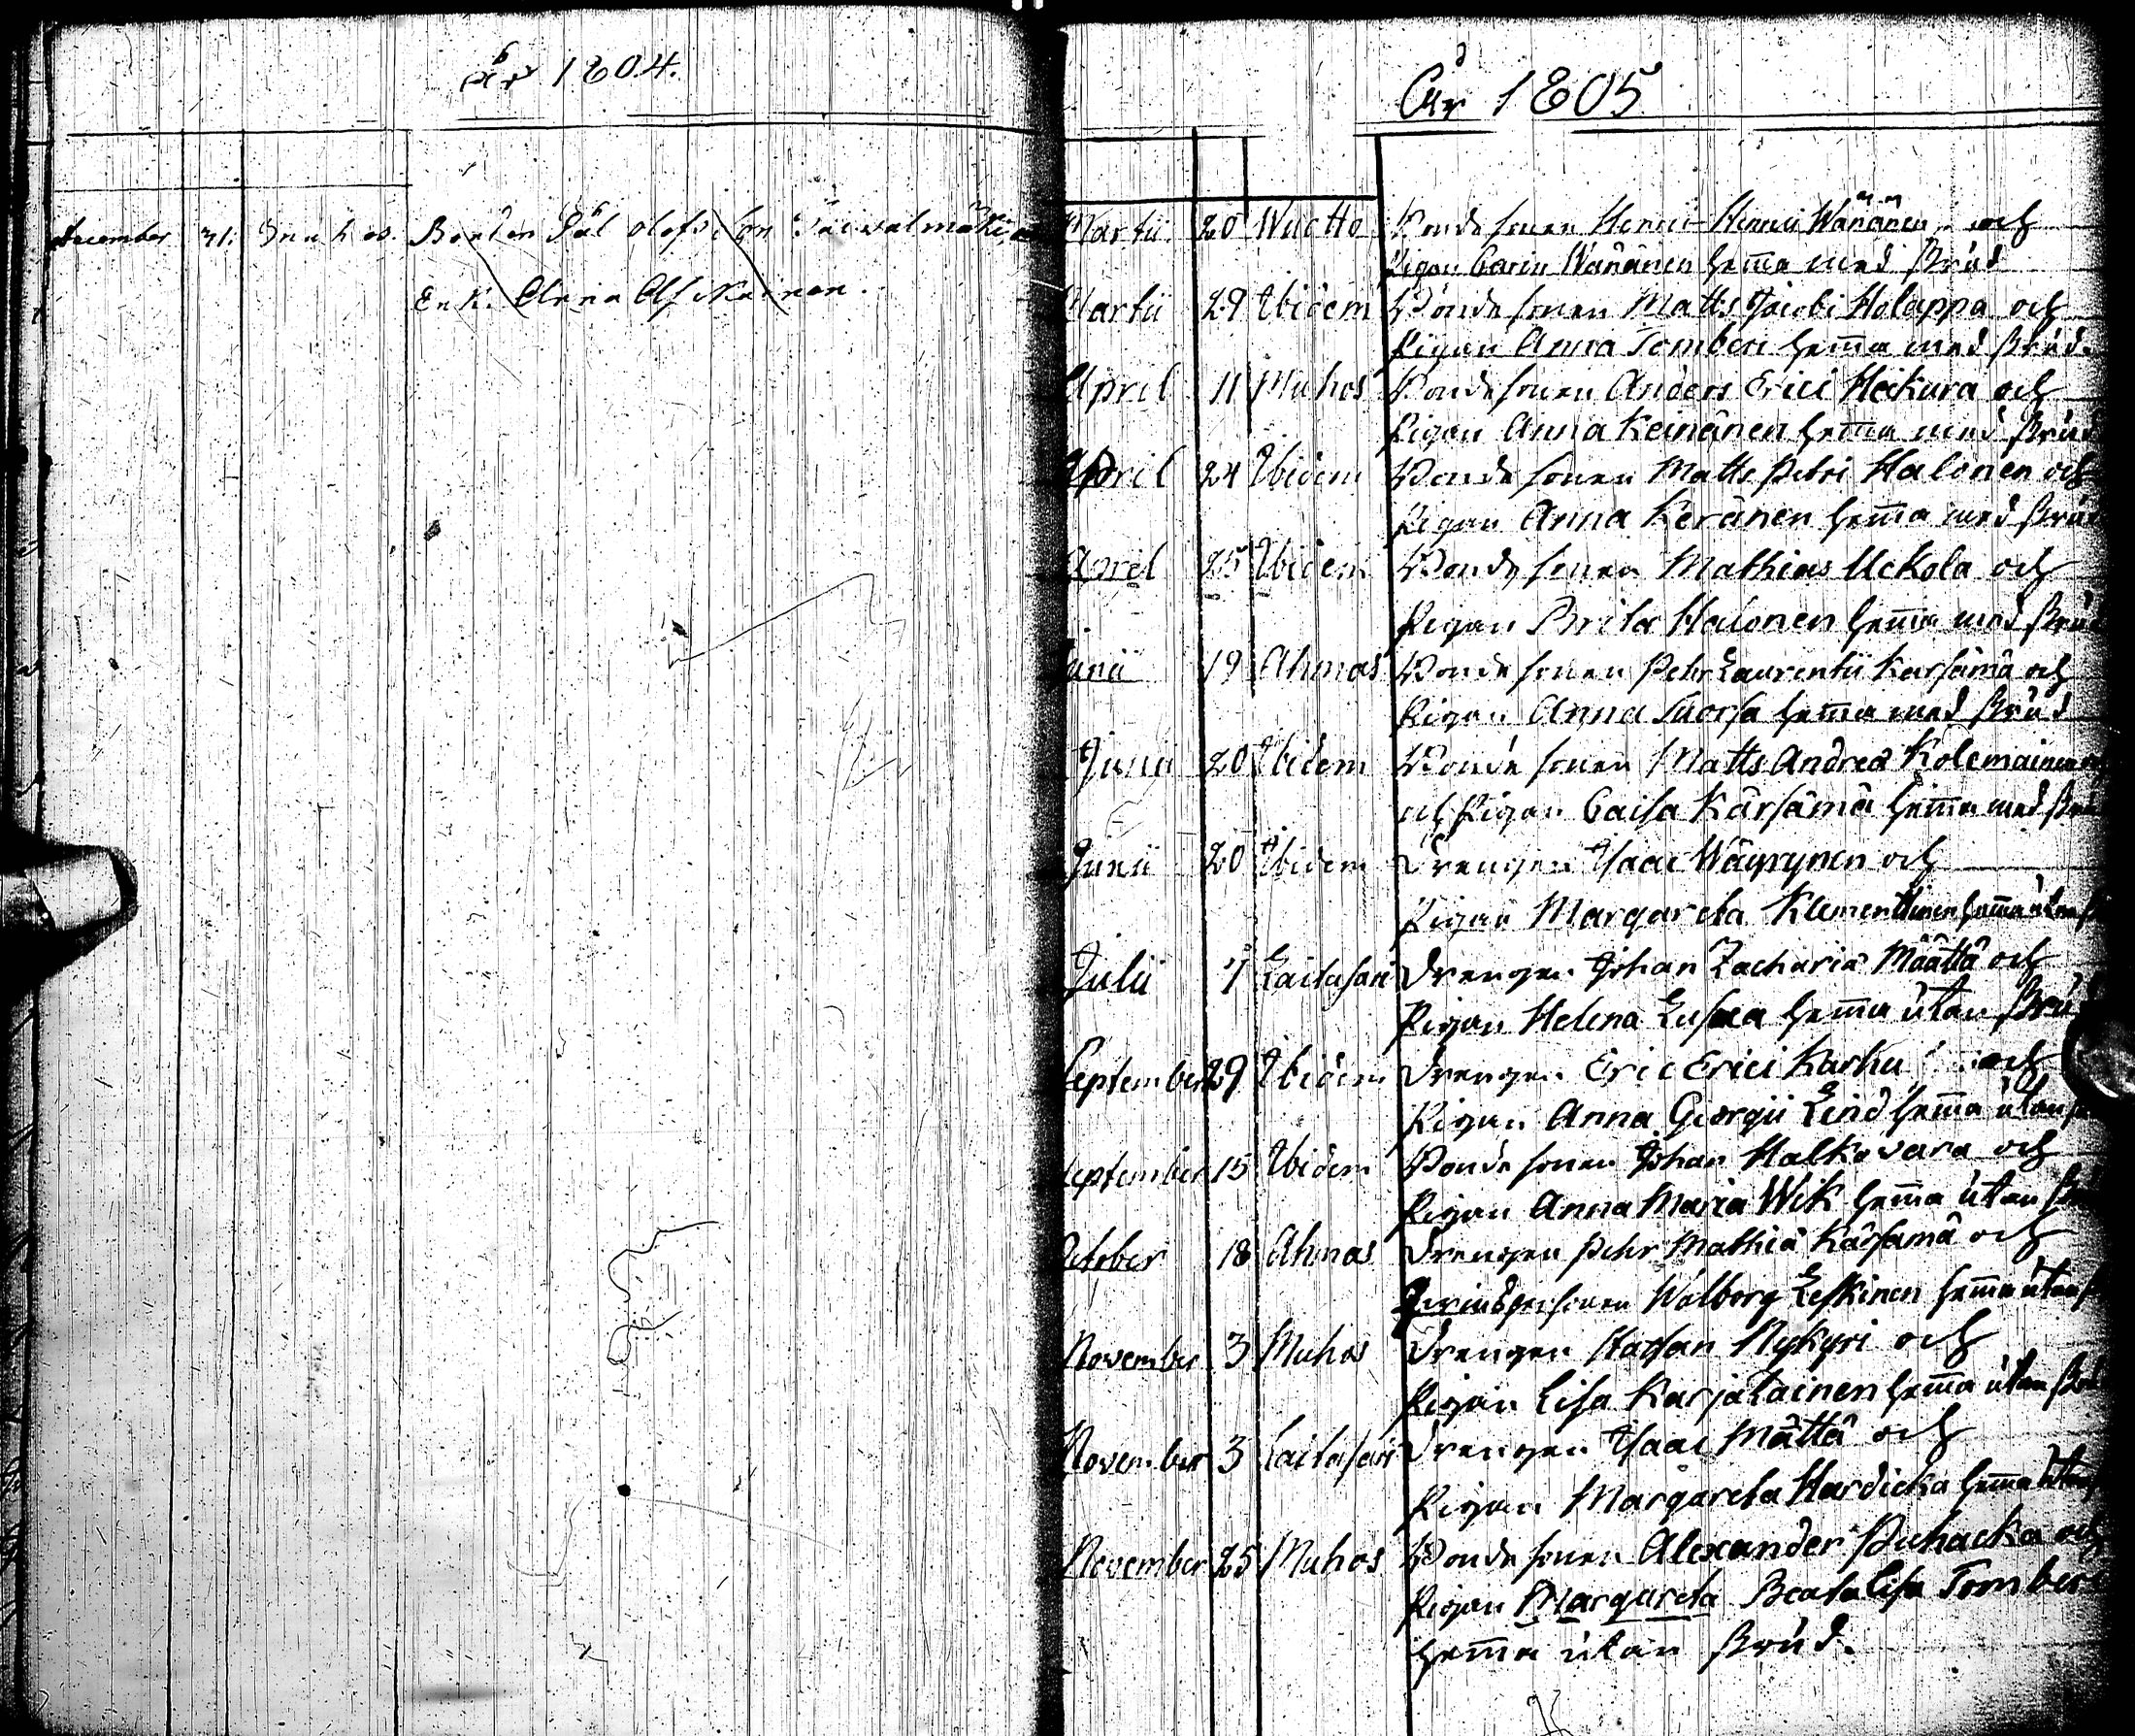 år 1804.
december 31. Muhos. Bonden Pål Olofsson Päivalmäki,
Enk. Anna Ahkainen.
År 1805
Martii 20 Wuotto Bondesonen Henric Henrici Wänänen och
Pigan Carin Wänänen hema med Brud
Martii 29 Ibidem Bondesonen Matts Jacobi Holappa och
Pigan Anna Tomberi hema med Brud.
April 11 Muhos Bondesonen Anders Erici Heikura och
Pigan Anna Keinänen hema med Brud
April 24 Ibidem Bondesonen Matts Petri Halonen och
Pigan Anna Keränen hema med Brud
April 25 Ibidem Bondesonen Mathias Uckola och
Pigan Brita Halonen hema med Brud
Junii 19 Ahmas Bondesonen Pehr Laurentii Karsämä och
Pigan Anna Suorsa hema med Brud
Junii 20 Ibidem Bondesonen Matts Andreæ Kolemainen
och Pigan Caisa Kärsämä hema med
Junii 20 Ibidem Drengen Isaac Wäyrynen och
Pigan Margareta Klementinen hema utan
Julii 7 Laitasari Drengen Johan Zachariæ Määttä och
Pigan Helena hema utan Brud
September 29 Ibidem Drengen Eric Erici Karhu och
Pigan Anna Georgii Lind hema utan
September 15 Ibidem Bondesonen Johan Halkovara och
Pigan Anna Maria Wik hema utan
October 18 Ahmas Drengen Pehr Mathiæ Kärsämä och
Qvindspersonen Walborg Leskinen hema utan
November 3 Muhos Drengen Staffan Nykyri och
Pigan Lisa Karjalainen hema utan
November 3 Laitasari Drengen Isaac Mättä och
Pigan Margareta Hardicka hema utan
November 25 Muhos Bondesonen Alexander Puhacka och
Pigan Margareta Beata Lisa Tomberi
hema utan Brud.